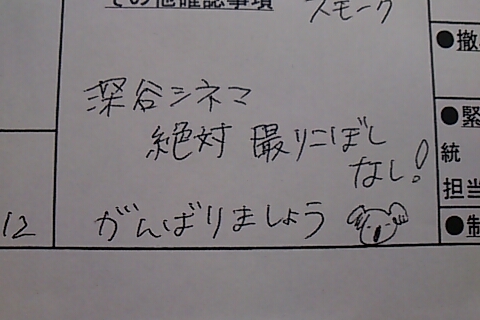 その他確認事項
スモーク
●撤
深谷シネマ
絶対 撮りこぼし
なし!
がんばりましょう
●緊
統
担当
12
●制